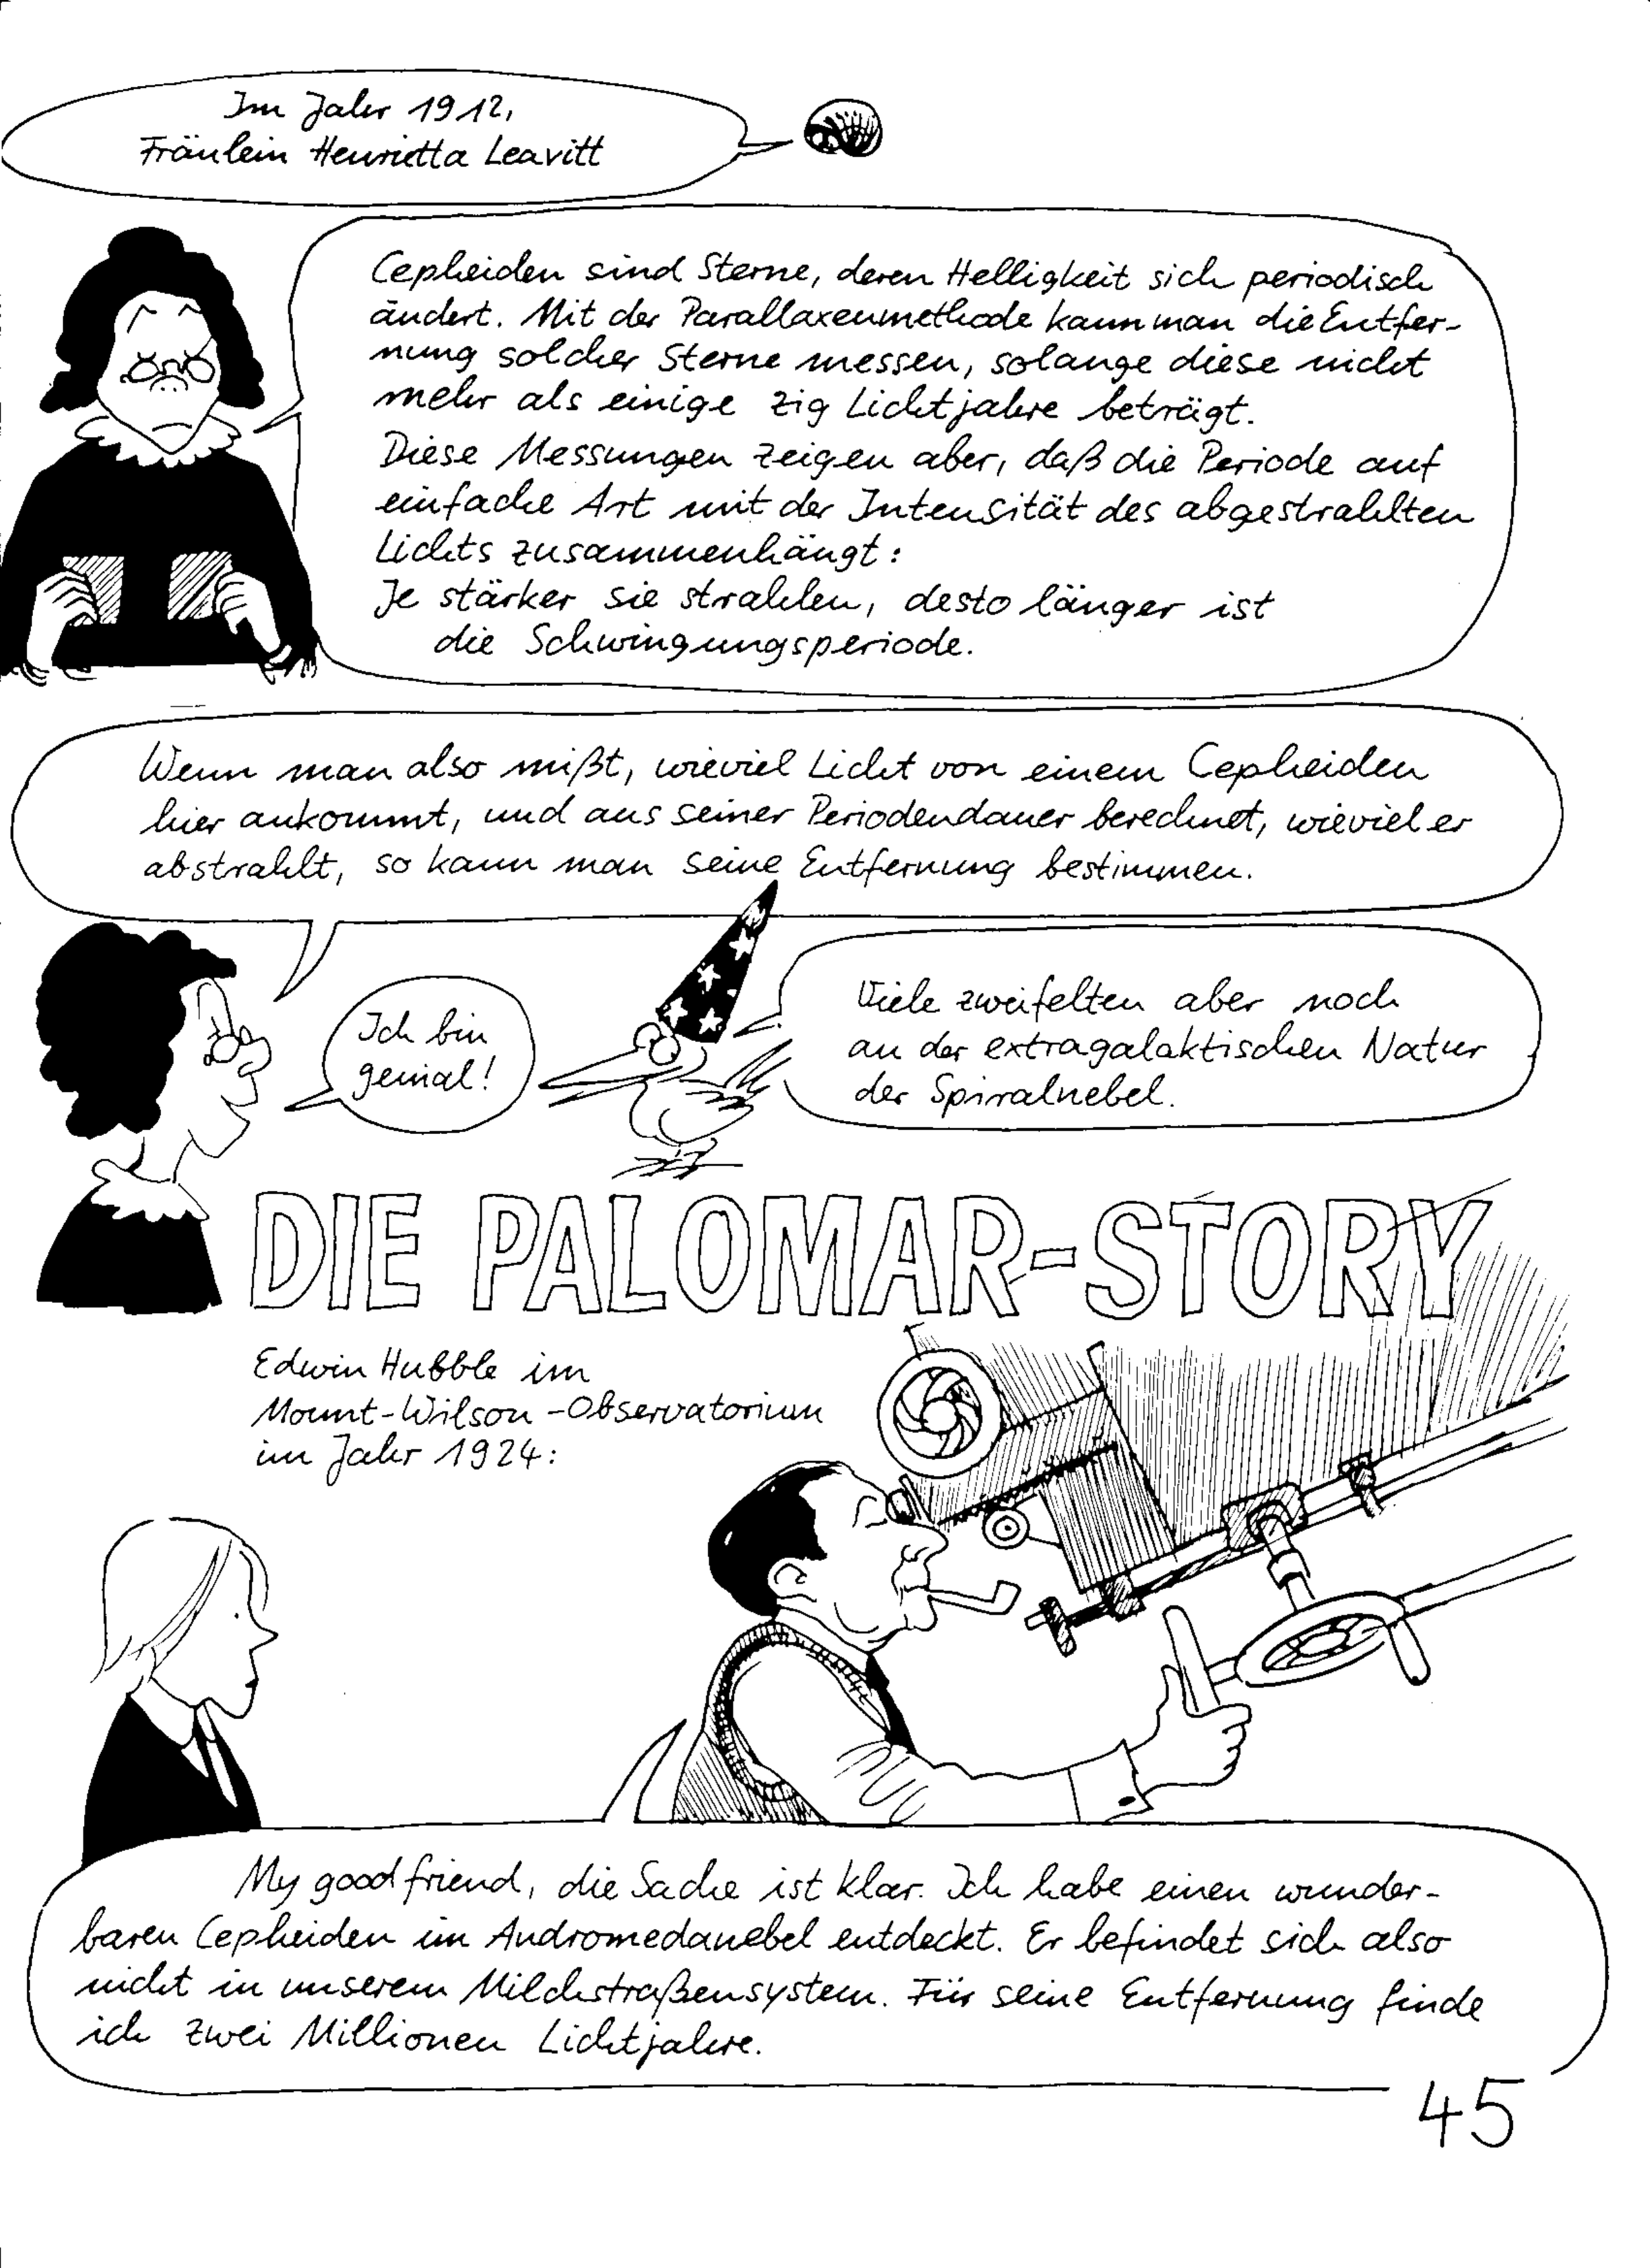 Im Jahr 1912,
Fräulein Henrietta Leavitt
Cepheiden sind Sterne, deren Helligkeit sich periodisch
ändert. Mit der Parallaxenmethode kann man die Entfer-
nung solcher Sterne messen, solange diese nicht
mehr als einige zig Lichtjahre beträgt.
Diese Messungen zeigen aber, daß die Periode auf
einfache Art mit der Intensität des abgestrahlten
Lichts zusammenhängt:
Je stärker sie strahlen, desto länger ist
die Schwingungsperiode.
Wenn man also mißt, wieviel Licht von einem Cepheiden
hier ankommt, und aus seiner Periodendauer berechnet, wieviel er
abstrahlt, so kann man seine Entfernung bestimmen.
Ich bin
genial!
Viele zweifelten aber noch
an der extragalaktischen Natur
der Spiralnebel.
DIE PALOMAR-STORY
Edwin Hubble im
Mount-Wilson-Observatorium
im Jahr 1924:
My good friend, die Sache ist klar. Ich habe einen wunder-
baren Cepheiden im Andromedanebel entdeckt. Er befindet sich also
nicht in unserem Milchstraßensystem. Für seine Entfernung finde
ich zwei Millionen Lichtjahre.
45